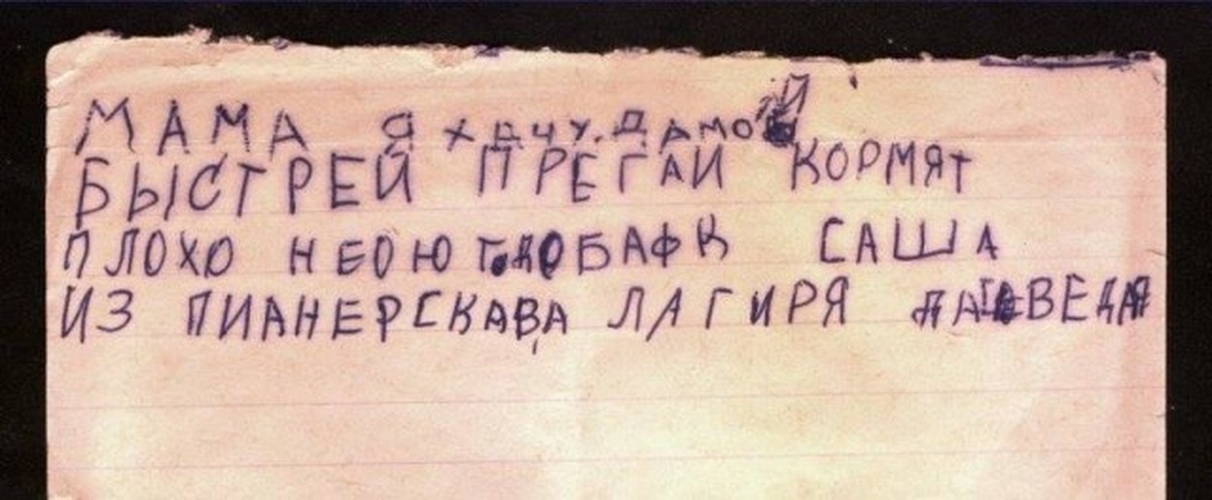 МАМА Я ХАЧУ. ДАМОЙ
БЫСТРЕЙ ПРЕГАИ КОРМЯТ
ПЛОХО НЕОЮТ ДОБАФК САША
ИЗ ПИАНЕРСКАВА ЛАГИРЯ